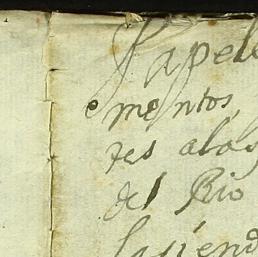 Papele
mentos,
tes alas
del Rio
hasiend